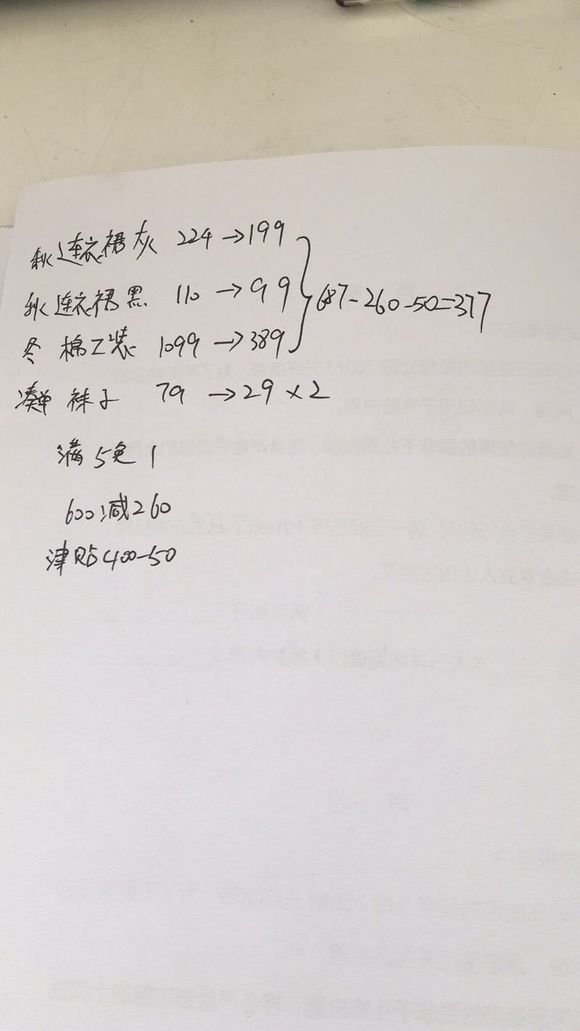 秋连衣裙灰 224→199
秋连衣裙黑 110→99
冬棉工装 1099→389
687-260-50=377
凑单 裤子 79→29×2
满5免1
600减260
津贴400-50